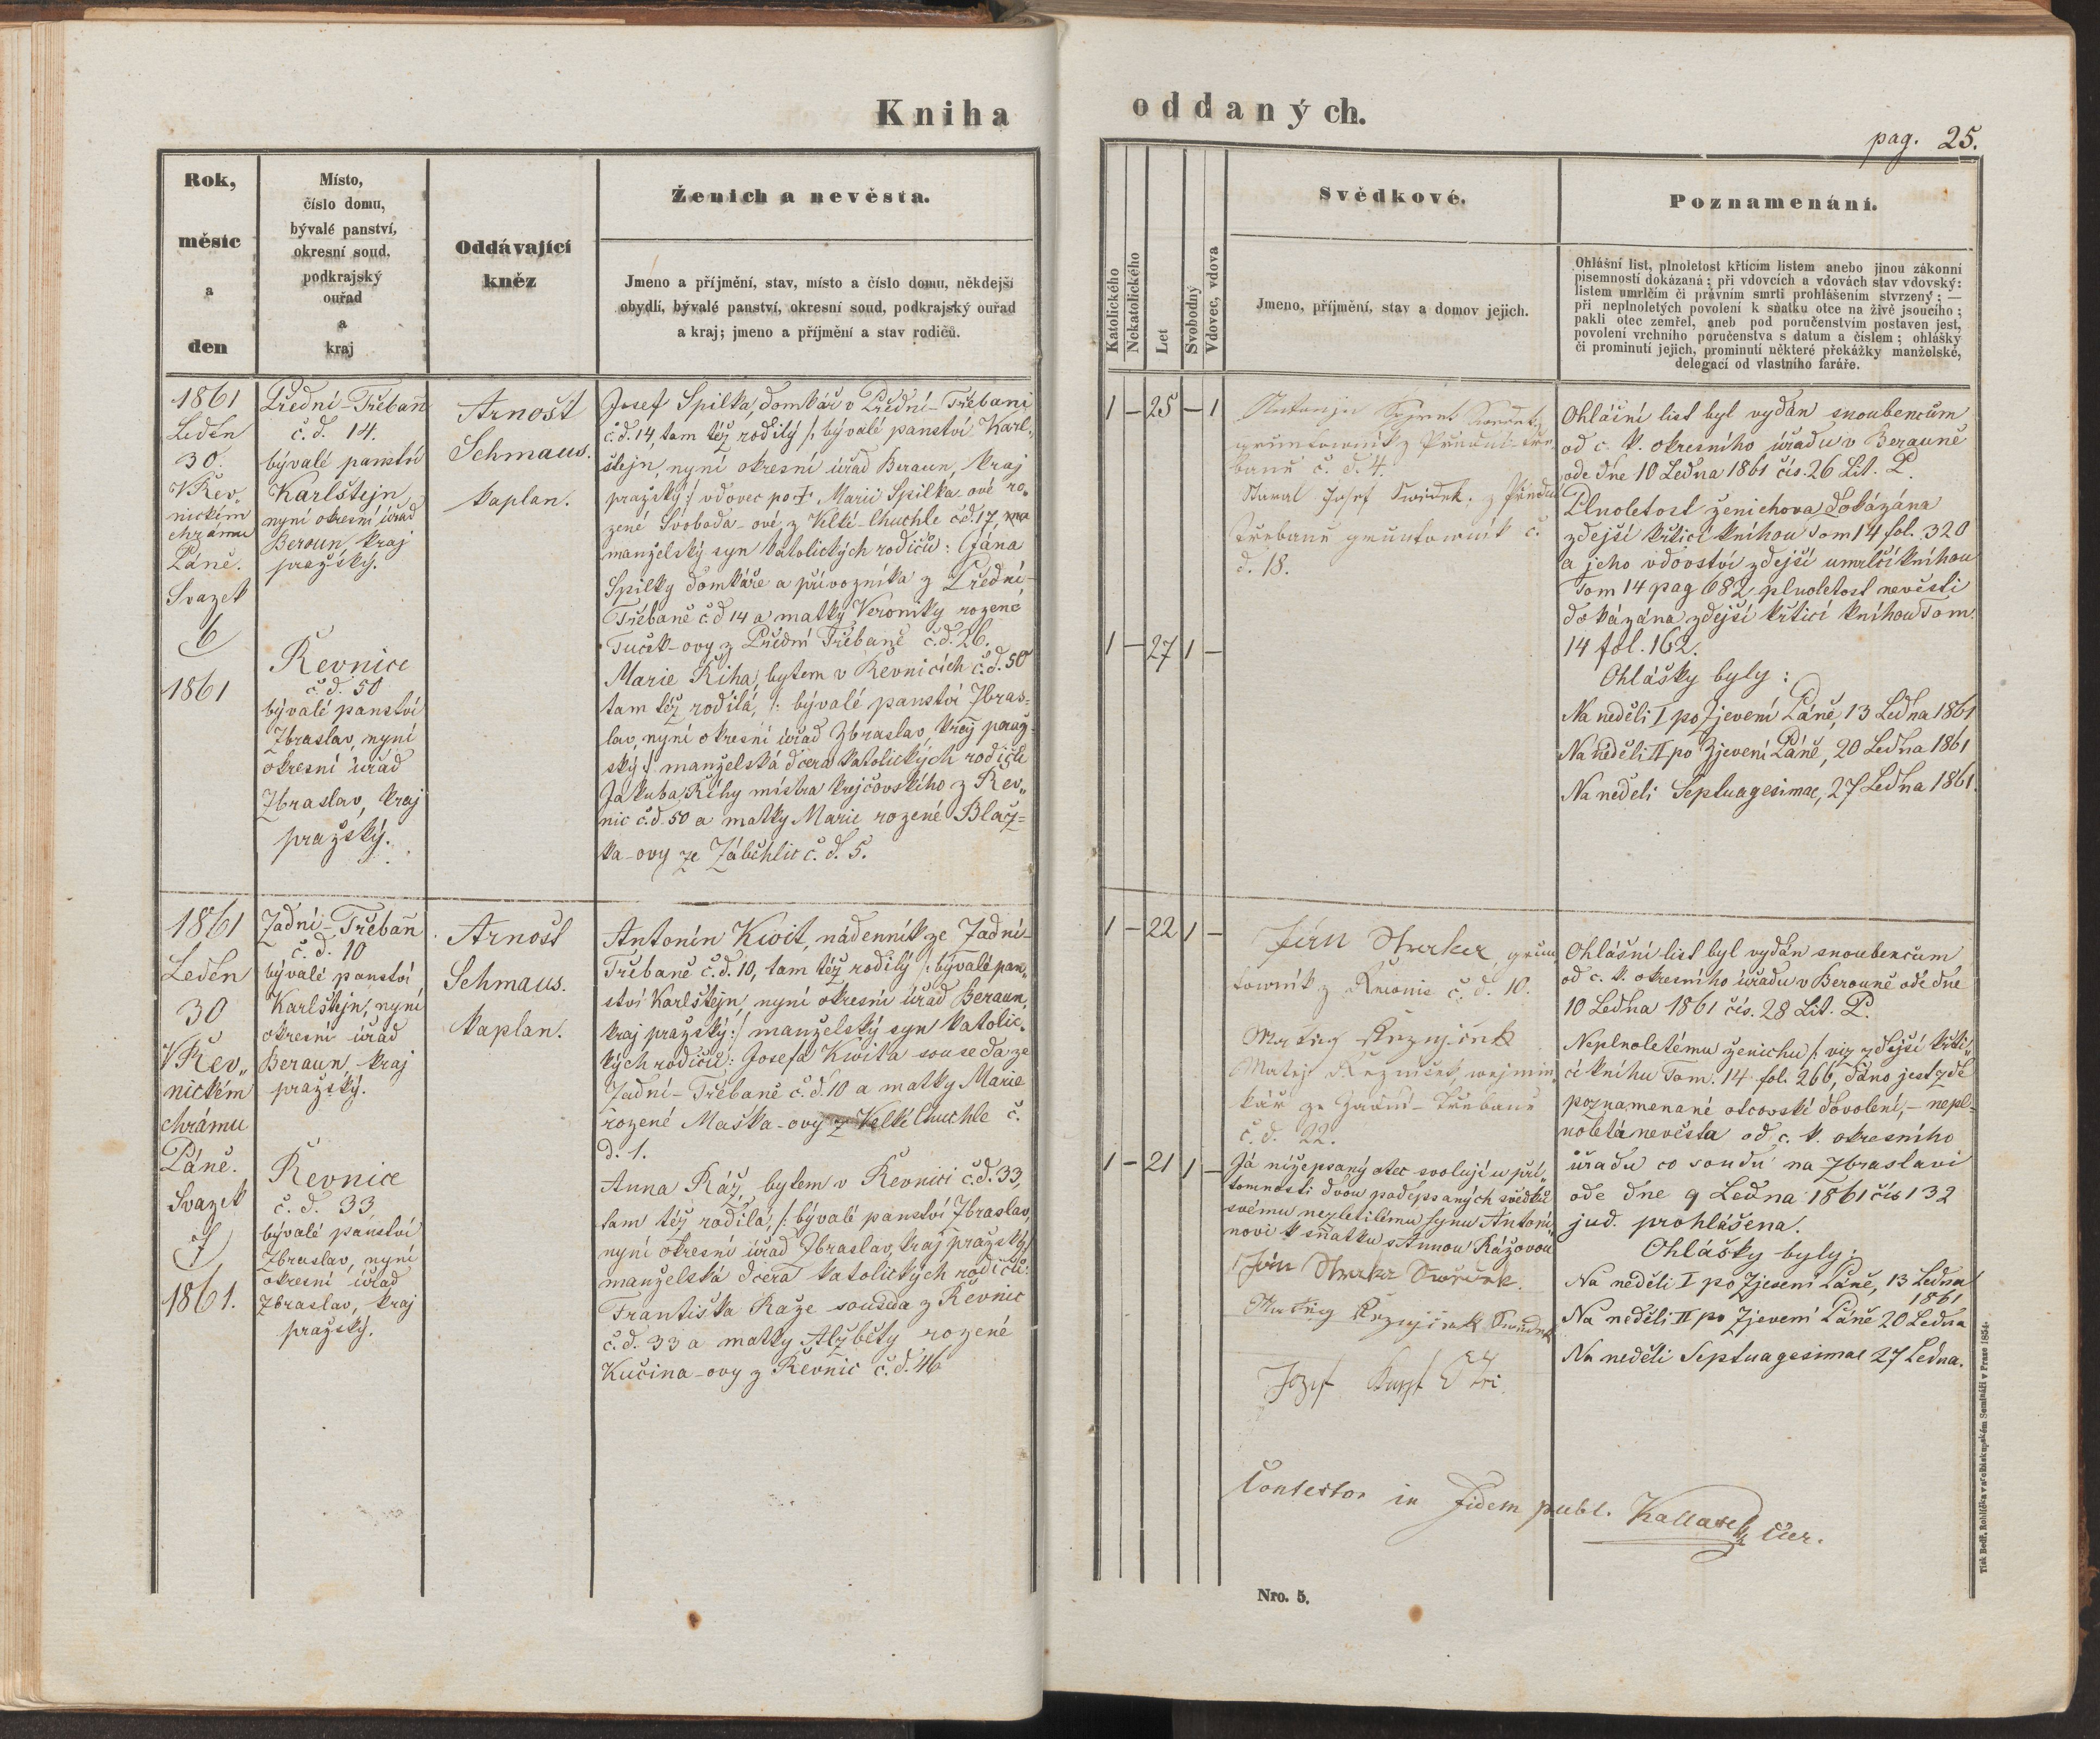 Kniha
oddaných.
pag. 25.
Rok,
měsíc
a
den
Místo,
číslo domu,
bývalé panství,
okresní soud,
podkrajský
ouřad
a
kraj
Oddávající
kněz
Ženich a nevěsta.
Jmeno a příjmění, stav, místo a číslo domu, někdejší
obydlí, bývalé panství, okresní soud, podkrajský ouřad
a kraj; jmeno a příjmění a stav rodičů.
Katolického
Nekatolického
Let
Svobodný
Vdovec, vdova
Svědkové.
Jmeno, příjmění, stav a domov jejich.
Poznamenání.
Ohlášní list, plnoletost křticím listem anebo jinou zákonní
písemností dokázaná; při vdovcích a vdovách stav vdovský:
listem umrlčím či právním smrti prohlášením stvrzený; —
při neplnoletých povolení k sňatku otce na živě jsoucího;
pakli otec zemřel, aneb pod poručenstvím postaven jest,
povolení vrchního poručenstva s datum a číslem; ohlášky
či prominutí jejich, prominutí některé překážky manželské,
delegací od vlastního faráře.
1861
Leden
30.
V Řev„
nickém
chrámu
Páně.
Svazek
6
1861
Přední-Třebaň
č. d. 14.
bývalé panství
Karlštejn
nyní okresní úřad
Beroun kraj
pražský.
Řevnice
č. d. 50
bývalé panství
Zbraslav, nyní
okresní úřad
Zbraslav, kraj
pražský.
Arnošt
Schmaus.
kaplan.
Josef Spilka, domkář v Přední-Třebani
č. d. 14, tam též rodilý /: bývalé panství Karl„
štejn, nyní okresní úřad Beraun, kraj
pražský :/ vdovec po † Marii Spilka-ové ro„
zené Svoboda-ové z Velké-Chuchle č. d. 17,
manželský syn katolických rodičů: Jána
Spilky domkáře a přívozníka z Přední-
Třebaně č. d 14 a matky Veroniky rozené
Tuček-ovy z Přední Třebaně č. d. 26.
Marie Říha, bytem v Řevnicích č. d. 50
tam též rodilá, /: bývalé panství Zbras-
lav, nyní okresní úřad Zbraslav, kraj praž-
ský :/ manželská dcera katolických rodičů
Jakuba Říhy místra krejčovského z Řev„
nic č. d. 50 a matky Marie rozené Blaž=
ka-ovy ze Záběhlic č. d. 5.
1 — 25 — 1
1 — 27 1 —
č. d. 4.
Josef
č.
d. 18.
Ohlášní list byl vydán snoubencům
od c. k. okresního úřadu v Berauně
ode dne 10 Ledna 1861 čís. 26 Lit. P.
Plnoletost ženichova dokázána
zdejší křticí knihou Tom 14 fol. 320
a jeho vdovství zdejší umrlčí knihou
Tom 14 pag 682, plnoletost nevěsti
dokázána zdejší křticí knihou Tom.
14 fol. 162.
Ohlášky byly:
Na neděli I po Zjevení Páně, 13 Ledna 1861
Na neděli II po Zjevení Páně, 20 Ledna 1861
Na neděli Septuagesimae, 27 Ledna 1861.
1861
Leden
30
V Řev„
nickém
chrámu
Páně.
Svazek
7
1861.
Zadní-Třebaň
č. d. 10
bývalé panství
Karlštejn, nyní
okresní úřad
Beraun, kraj
pražský.
Řevnice
č. d. 33
bývalé panství
Zbraslav, nyní
okresní úřad
Zbraslav, kraj
pražský.
Arnošt
Schmaus.
kaplan.
Antonín Kwit, nádenník ze Zadní-
Třebaně č. d. 10, tam též rodilý /: bývalé pan„
ství Karlštejn, nyní okresní úřad Beraun,
kraj pražský :/ manželský syn katolic„
kých rodičů: Josefa Kwita souseda ze
Zadní-Třebaně č. d. 10 a matky Marie
rozené Maška-ovy z Velké Chuchle č.
d. 1.
Anna Ráž, bytem v Řevnici č. d. 33,
tam též rodilá, /: bývalé panství Zbraslav,
nyní okresní úřad Zbraslav, kraj pražský :/
manželská dcera katolických rodičů:
Františka Ráže souseda z Řevnic
č. d. 33 a matky Alžběty rozené
Kučina-ovy z Řevnic č. d. 46
1 — 22 1 —
1 — 21 1 —
č. d. 10.
č. d. 22.
Já nížepsaný otec svoluji u pří„
tomnosti dvou podepsaných svědků
svému nezletilému synu Antoní„
novi k sňatku s Annou Rážovou
Ohlášní list byl vydán snoubencům
od c. k. okresního úřadu v Berouně ode dne
10 Ledna 1861 čís. 28 Lit. P.
Neplnoletému ženichu /: viz zdejší křti„
cí knihu Tom. 14 fol. 266, dáno jest zde
poznamenané otcovské dovolení, — nepl-
noletá nevěsta od c. k. okresního
úřadu co soudu na Zbraslavi
ode dne 9 Ledna 1861 čís 132
jud. prohlášena.
Ohlášky byly:
Na neděli I po Zjevení Páně, 13 Ledna
1861
Na neděli II po Zjevení Páně 20 Ledna
Na neděli Septuagesimae 27 Ledna.
in fidem publ.
Nro. 5.
Tisk Bedř. Rohlíčka v arcibiskupském Semináři v Praze 1854.